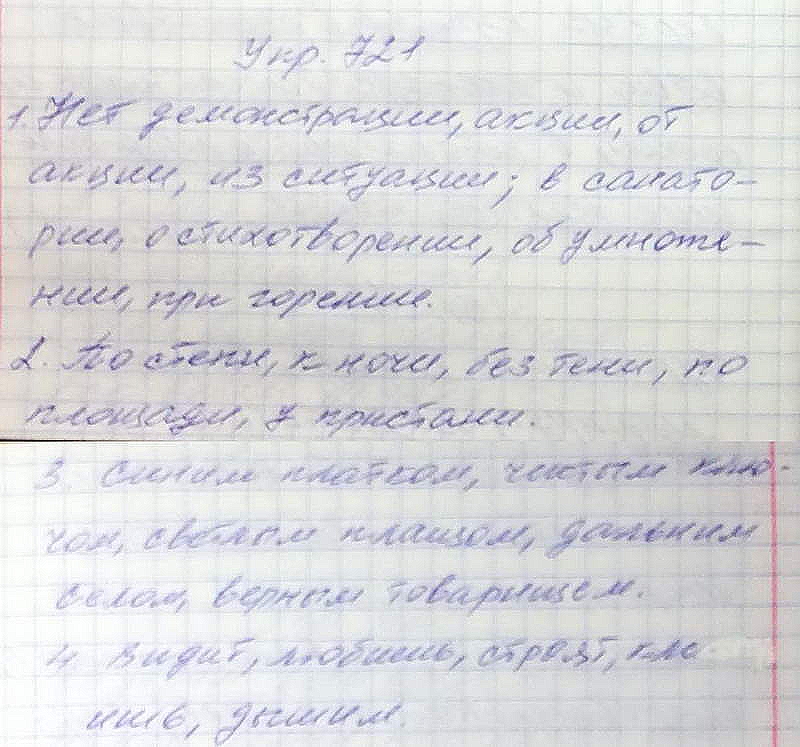 Упр. 721
1. Нет демонстрации, акции, от
акции, из ситуации; в санато-
рии, о стихотворении, об умноже-
нии, при горении.
2. По степи, к ночи, без тени, по
площади, у пристани.
3. Синим платком, чистым клю-
чом, светлым плащом, дальним
селом, верным товарищем.
4. Видит, любишь, строят, кле
ишь, дышим.